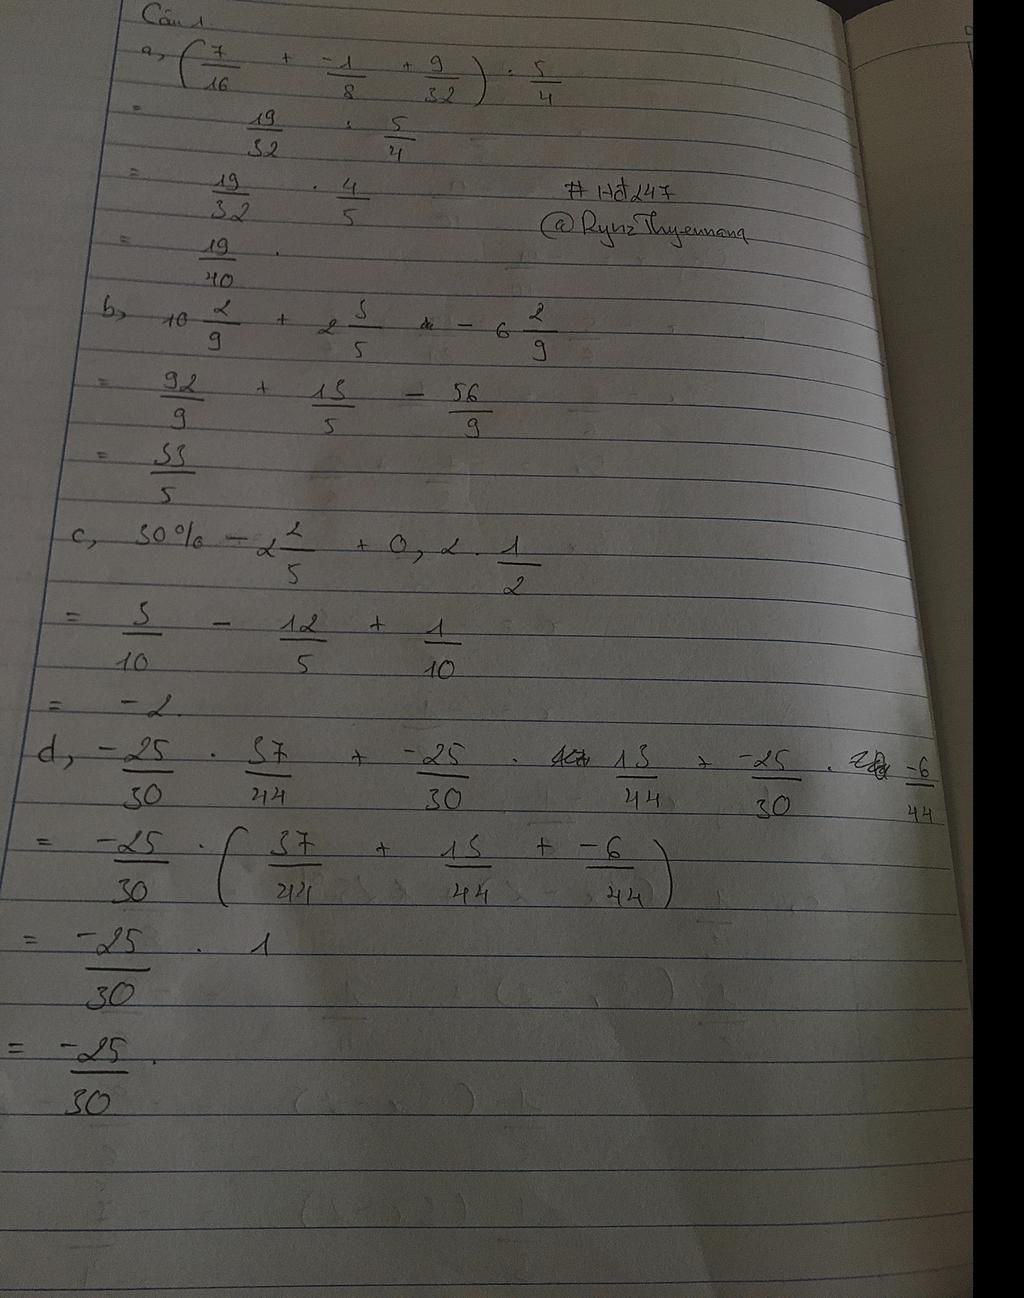 Câu 1.
a, (7/16 + -1/8 + 9/32) : 5/4
= 19/32 : 5/4
= 19/32 . 4/5
# Hđ247
@RynzThyennana
= 19/40 .
b, 10 2/9 + 2 3/5 - 6 2/9
= 92/9 + 13/5 - 56/9
= 33/5
c, 30% - 2 2/5 + 0,2 . 1/2
= 3/10 - 12/5 + 1/10
= -2.
d, -25/30 . 37/44 + -25/30 . 13/44 + -25/30 . -6/44
= -25/30 . (37/44 + 13/44 + -6/44)
= -25/30 . 1
= -25/30 .